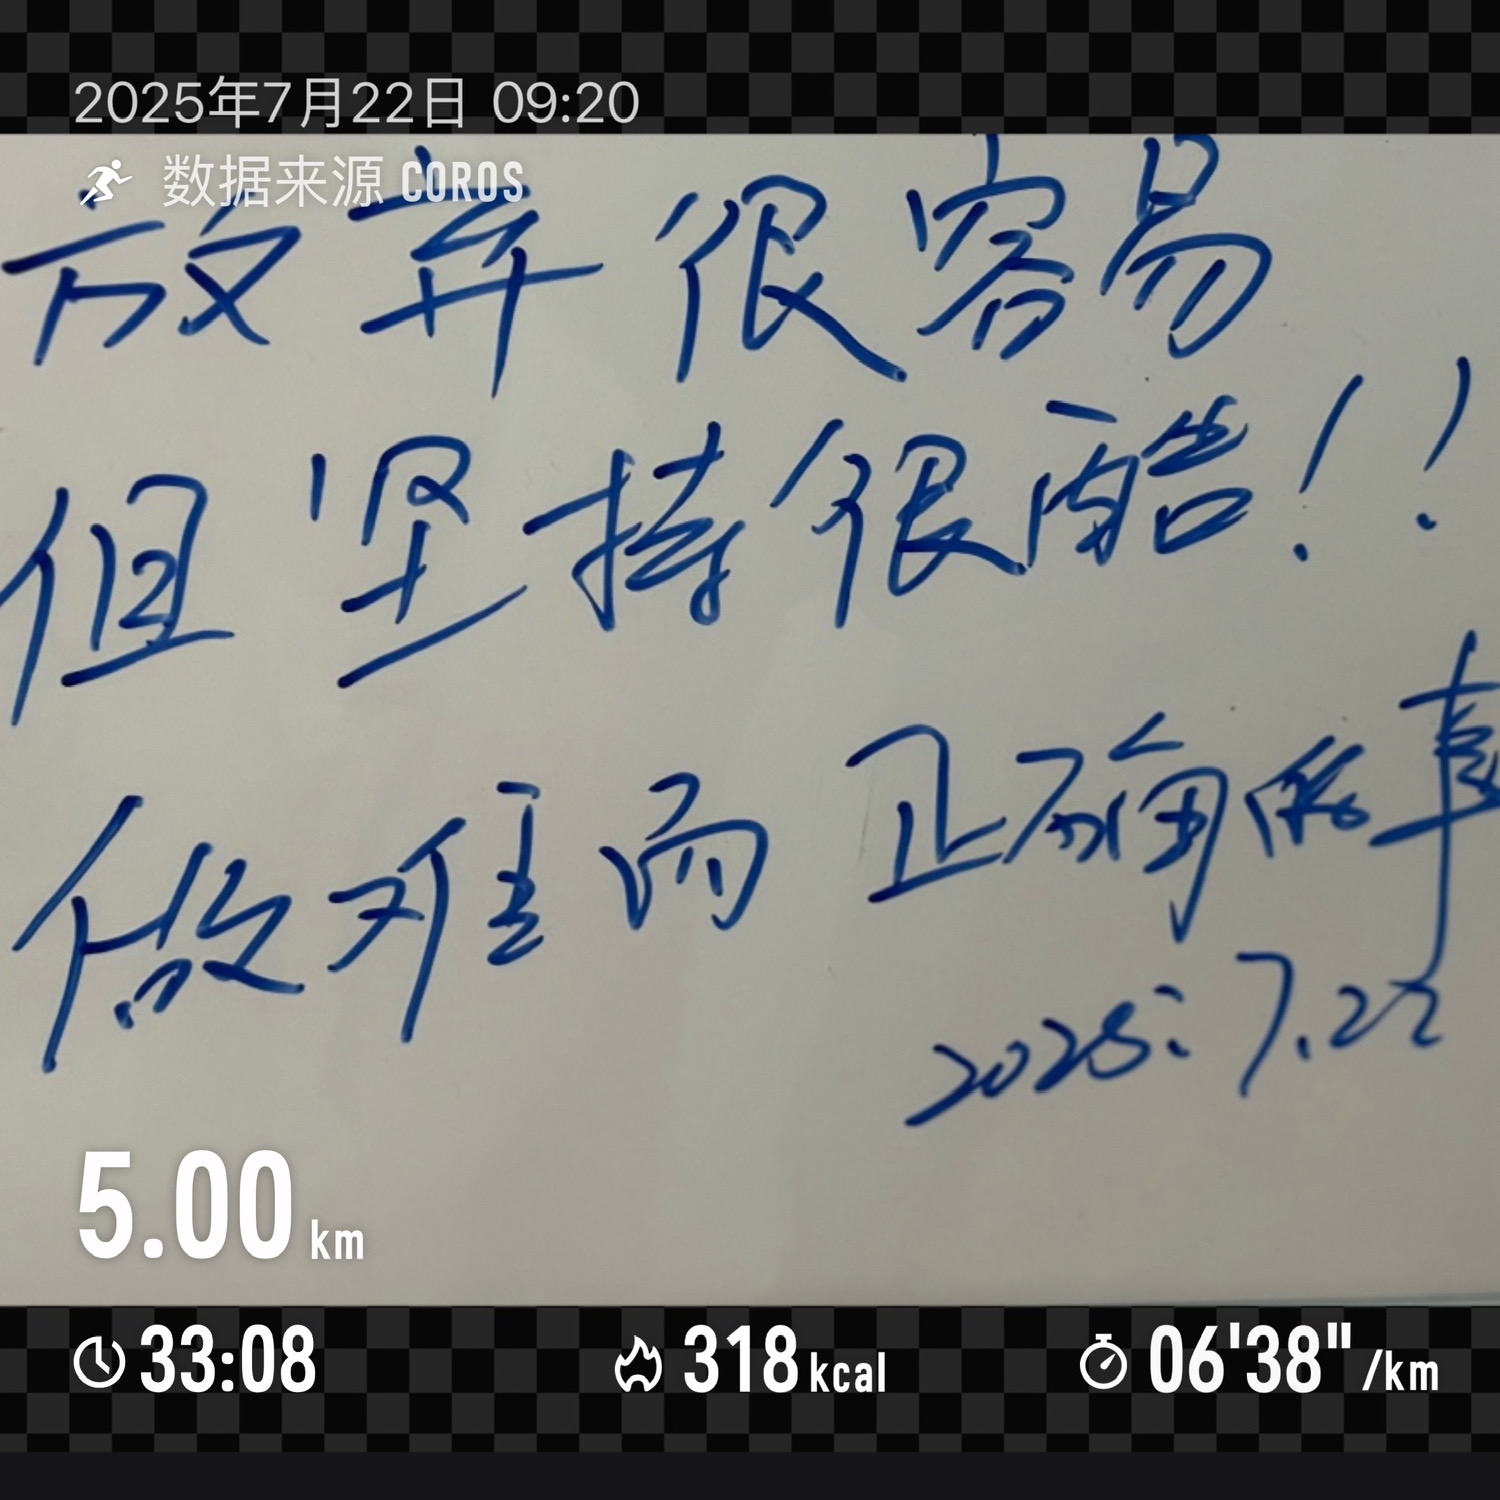 2025年7月22日 09:20
数据来源 COROS
放弃很容易
但坚持很酷！！
做难而正确的事
2025:7.22
5.00 km
33:08
318 kcal
06'38" /km